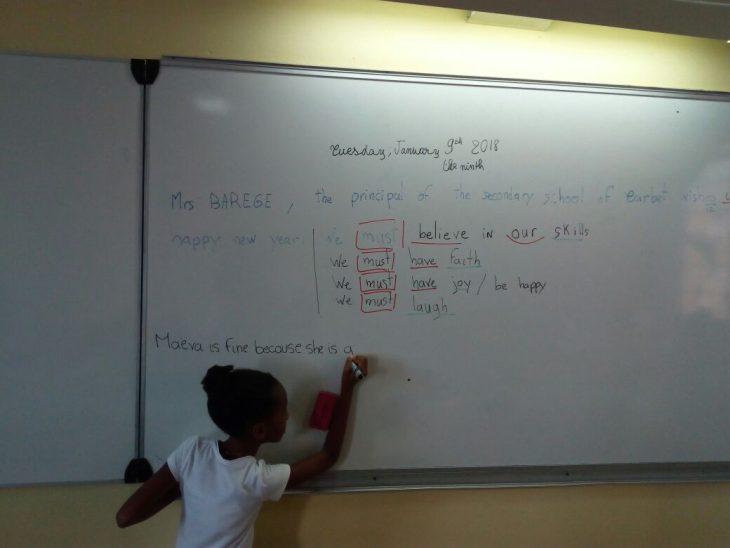 Tuesday, January 9th 2018
the ninth
Mrs BAREGE, the principal of the secondary school of Barbet
happy new year. We must believe in our skills
We must have faith
We must have joy / be happy
we must laugh
Maeva is fine because she is a